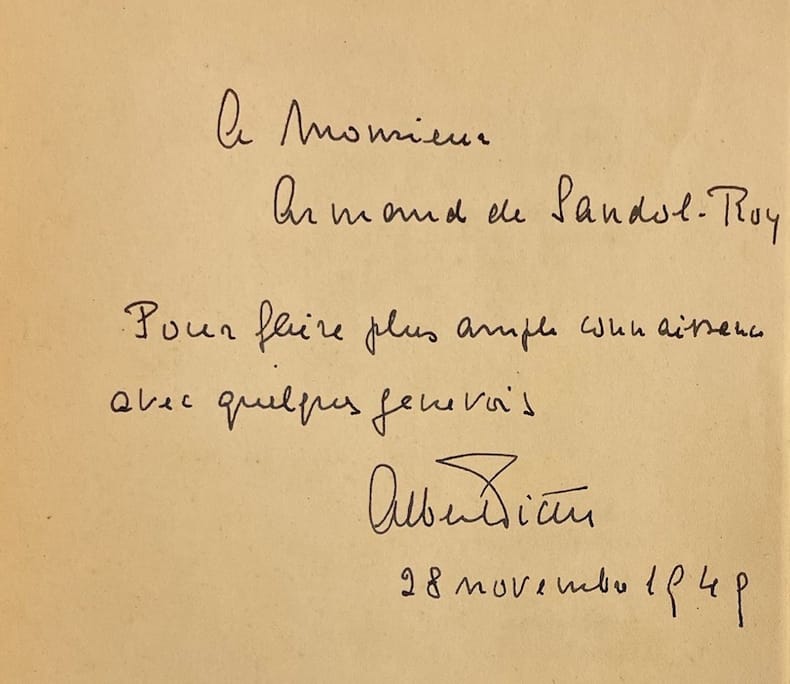 A Monsieur
Armand de Sandol-Roy
Pour faire plus ample connaissance
avec quelques genevois
Albert
28 novembre 1949